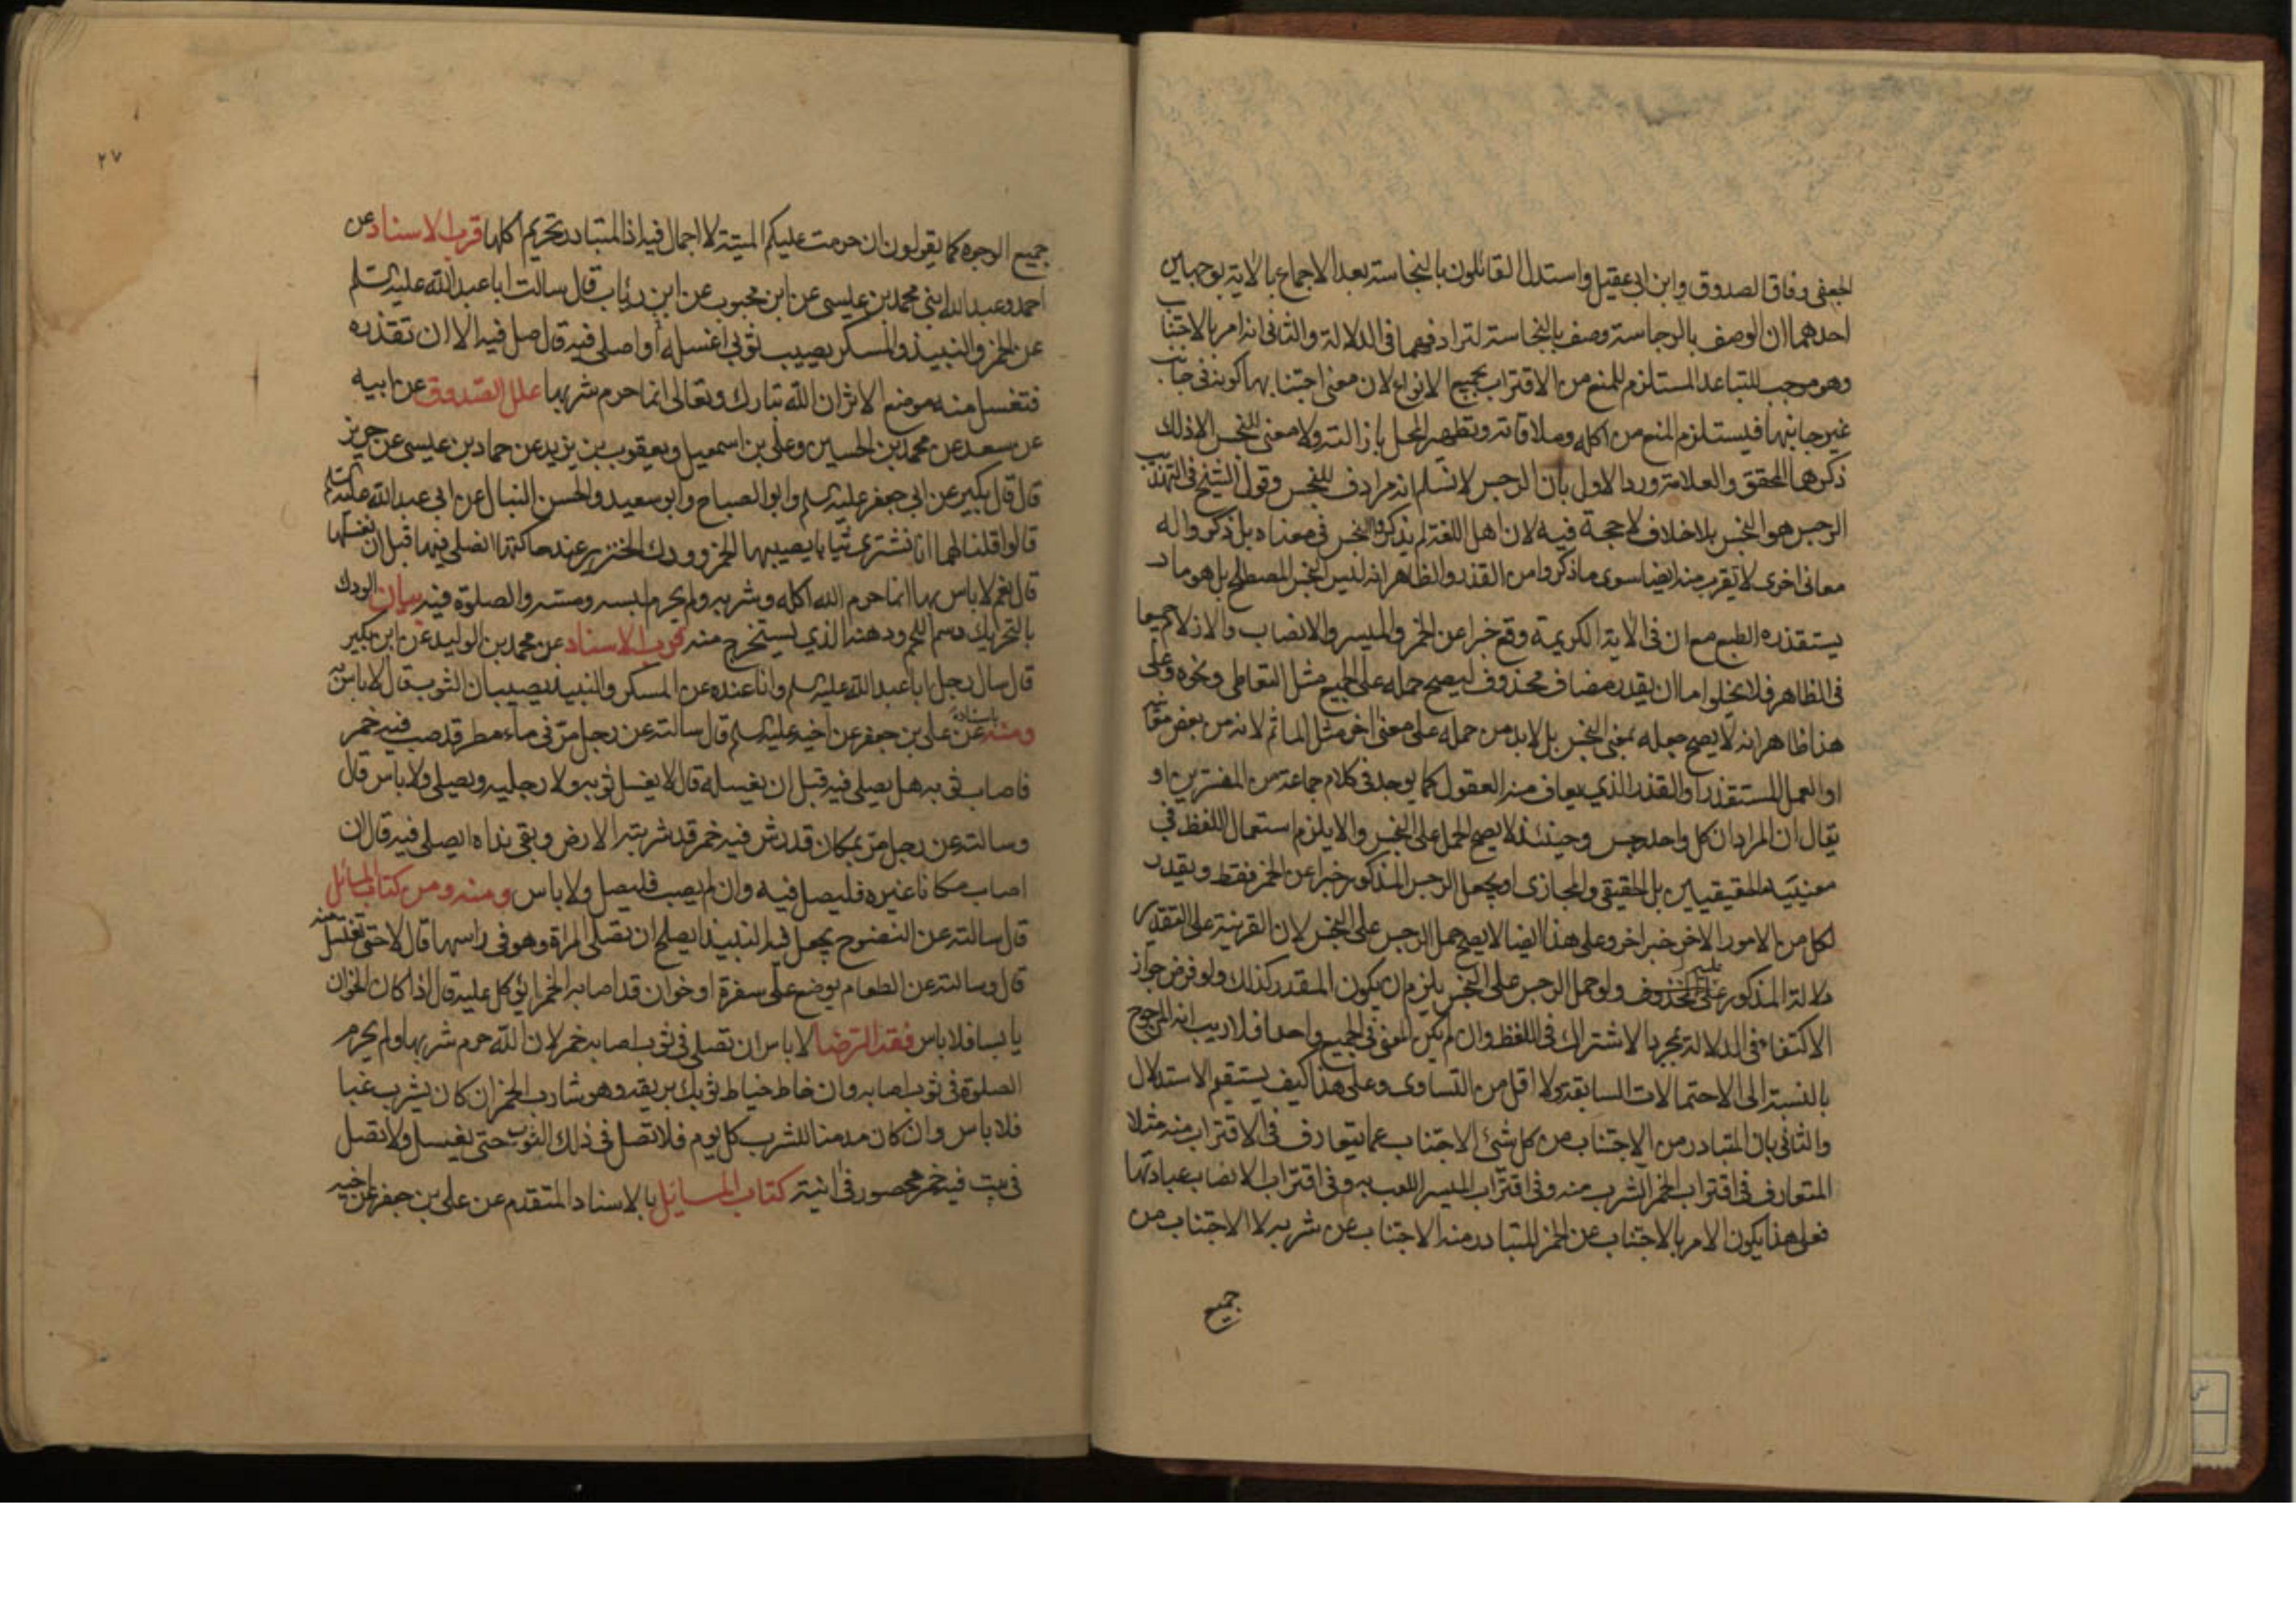 الجعفي وفاق الصدوق وابن ابي عقيل واستدل القائلون بالنجاسة بعد الاجماع بالاية بوجهين
احدهما ان الوصف بالرجاسة وصف بالنجاسة لترادفهما في الدلالة والثاني انه امر بالاجتناب
وهو موجب للتباعد المستلزم للمنع من الاقتراب بجميع الانواع لان معنى اجتنابها كونه في جانب
غير جانبها فيستلزم المنع من اكله وملاقاته وتطهير المحل بازالته ولا معنى للنجس الا ذلك
ذكرهما المحقق والعلامة ورد الاول بان الرجس لا نسلم انه مرادف للنجس وقول الشيخ في التهذيب
الرجس هو النجس بلا خلاف لا حجة فيه لان اهل اللغة لم يذكروا النجس في معناه بل ذكروا له
معاني اخرى لا يقرب منه ايضا سوى ما ذكروا من القذر والظاهر انه ليس النجس المصطلح بل هو ما
يستقذره الطبع مع ان في الاية الكريمة وقع خبرا عن الخمر والميسر والانصاب والازلام جميعا
في الظاهر فلا يخلوا اما ان يقدر مضاف محذوف ليصح حمله على الجميع مثل التعاطي ونحوه وعلى
هذا ظاهر انه لا يصح جعله بمعنى النجس بل لابد من حمله على معنى اخر مثل الماثم لانه من بعض معانيه
او العمل المستقذر او القذر الذي يعاف منه العقول كما يوجد في كلام جماعة من المفسرين او
يقال ان المراد ان كل واحد رجس وحينئذ لا يصح الحمل على النجس والا يلزم استعمال اللفظ في
معنييه الحقيقيين بل الحقيقي والمجازى او يجعل الرجس المذكور خبرا عن الخمر فقط ويقدر
لكل من الامور الاخر خبر اخر وعلى هذا ايضا لا يصح حمل الرجس على النجس لان القرينة على التقدير
دلالة المذكور على المحذوف عليه ولو حمل الرجس على النجس يلزم ان يكون المقدر كذلك ولو فرض جواز
الاكتفاء في الدلالة بمجرد الاشتراك في اللفظ وان لم يكن المعنى في الجميع واحدا فلا ريب انه المرجوح
بالنسبة الى الاحتمالات السابقة ولا اقل من التساوى وعلى هذا كيف يستقيم الاستدلال
والثاني بان المتبادر من الاجتناب من كل شئ الاجتناب عما يتعارف في الاقتراب منه مثلا
المتعارف في اقتراب الخمر الشرب منه وفي اقتراب الميسر اللعب به وفي اقتراب الانصاب عبادتها
فعلى هذا يكون الامر بالاجتناب عن الخمر المتبادر منه الاجتناب عن شربه لا الاجتناب من
جميع
٢٧
جميع الوجوه كما يقولون ان حرمت عليكم الميتة لا اجمال فيه اذ المتبادر تحريم اكلها قرب الاسناد عن
احمد وعبد الله ابني محمد بن عيسى عن ابن محبوب عن ابن رئاب قال سالت ابا عبد الله عليه السلم
عن الخمر والنبيذ والمسكر يصيب ثوبي اغسله او اصلي فيه قال صل فيه الا ان تقذره
فتغسل منه موضع الاثر ان الله تبارك وتعالى انما حرم شربها علل الصدوق عن ابيه
عن سعد عن محمد بن الحسين وعلي بن اسمعيل ويعقوب بن يزيد عن حماد بن عيسى عن حريز
قال قال بكير عن ابي جعفر عليه السلم وابو الصباح وابو سعيد والحسن النبال عن ابي عبد الله عليه السلم
قالوا قلنا لهما انا نشترى ثيابا يصيبها الخمر وودك الخنزير عند حاكتها انصلي فيها قبل ان نغسلها
قال نعم لا باس بها انما حرم الله اكله وشربه ولم يحرم لبسه ومسه والصلوة فيه بيان الودك
بالتحريك دسم اللحم ودهنه الذي يستخرج منه قرب الاسناد عن محمد بن الوليد عن ابن بكير
قال سال رجل ابا عبد الله عليه السلم وانا عنده عن المسكر والنبيذ يصيبان الثوب قال لا باس به
ومنه باسناده عن علي بن جعفر عن اخيه عليه السلم قال سالته عن رجل مر في ماء مطر قد صب فيه خمر
فاصاب ثوبه هل يصلي فيه قبل ان يغسله قال لا يغسل ثوبه ولا رجليه ويصلي ولا باس قال
وسالته عن رجل مر بمكان قد رش فيه خمر قد شربته الارض وبقي نداه ايصلي فيه قال ان
اصاب مكانا غيره فليصل فيه وان لم يصب فليصل ولا باس ومنه ومن كتاب المسائل
قال سالته عن النضوح يجعل فيه النبيذ ايصلح ان تصلي المراة وهو في راسها قال لا حتى تغتسل منه
قال وسالته عن الطعام يوضع على سفرة او خوان قد اصابه الخمر ايؤكل عليه قال اذا كان الخوان
يابسا فلا باس فقه الرضا لا باس ان تصلي في ثوب اصابه خمر لان الله حرم شربها ولم يحرم
الصلوة في ثوب اصابه وان خاط خياط ثوبك بريقه وهو شارب الخمر ان كان يشرب غبا
فلا باس وان كان مدمنا للشرب كل يوم فلا تصل في ذلك الثوب حتى يغسل ولا تصل
في بيت فيه خمر محصور في انية كتاب المسائل بالاسناد المتقدم عن علي بن جعفر عن اخيه